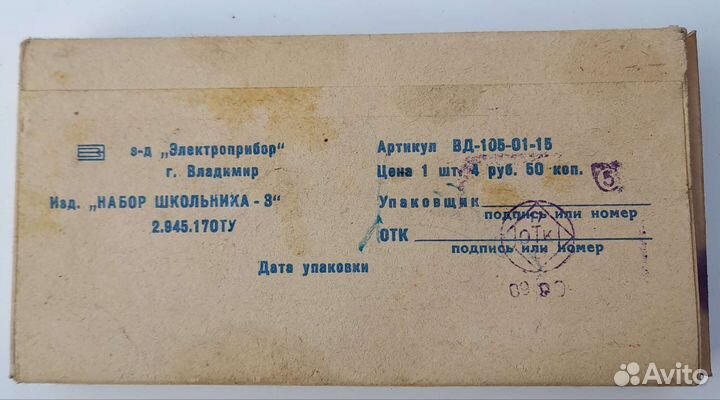 з-д „Электроприбор"
г. Владимир
Изд. „НАБОР ШКОЛЬНИКА-3"
2.945.170ТУ
Артикул ВД-105-01-15
Цена 1 шт. 4 руб. 50 коп.
5
Упаковщик
подпись или номер
ОТК
подпись или номер
ОТК
Дата упаковки
Avito